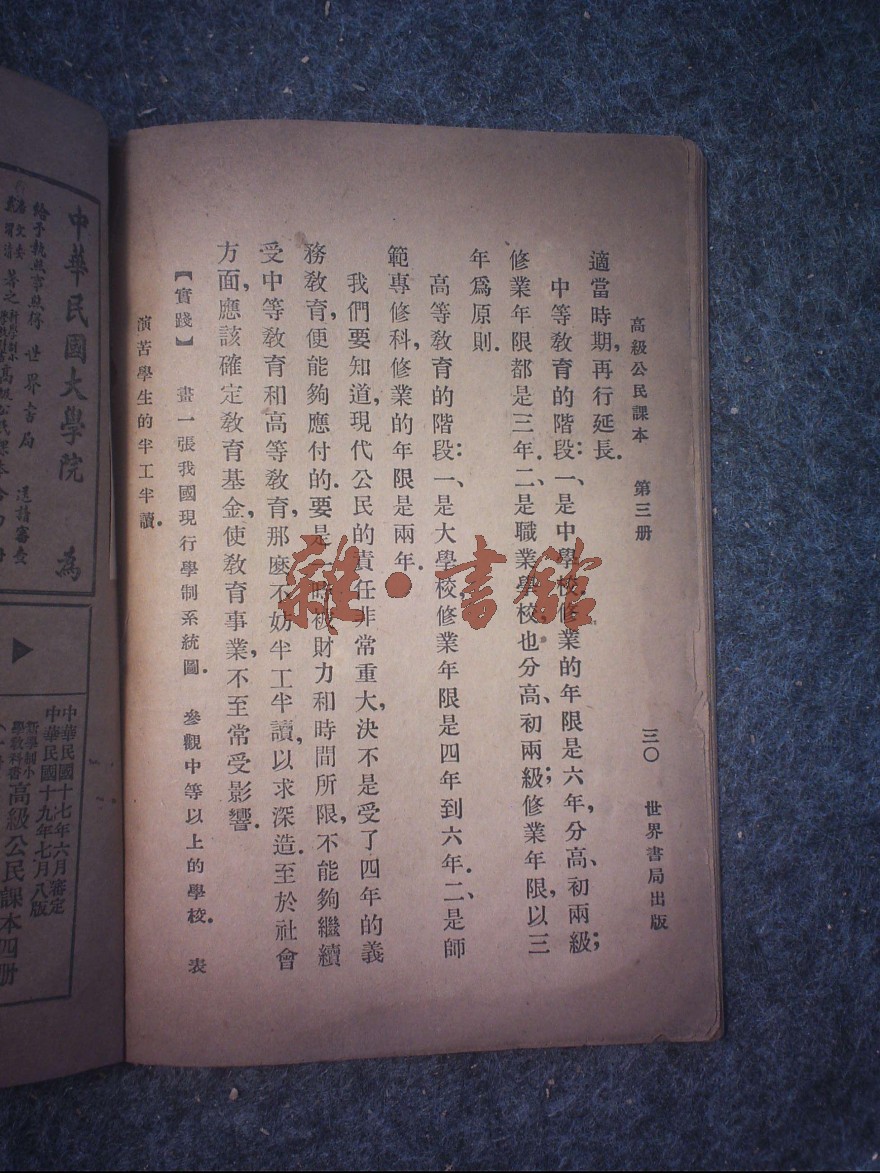 高級公民課本　第三册　三〇　世界書局出版
適當時期,再行延長.
中等敎育的階段:一、是中學校,修業的年限是六年,分高、初兩級;
修業年限都是三年.二、是職業學校,也分高、初兩級;修業年限,以三
年爲原則.
高等敎育的階段:一、是大學校修業年限是四年到六年.二、是師
範專修科,修業的年限是兩年.
我們要知道,現代公民的責任非常重大,決不是受了四年的義
務敎育,便能夠應付的.要是一時被財力和時間所限,不能夠繼續
受中等敎育和高等敎育,那麼不妨半工半讀,以求深造.至於社會
方面,應該確定敎育基金,使敎育事業,不至常受影響.
【實踐】　畫一張我國現行學制系統圖.　參觀中等以上的學校.　表
演苦學生的半工半讀.
雜·書館
中華民國大學院　為
世界書局
中華民國十七年六月審定
中華民國十九年七月八版
新學制小
學敎科書
高級公民課本四册